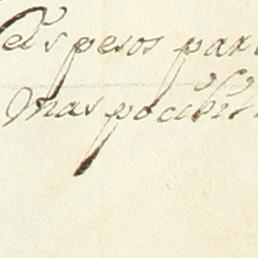 pesos par
mas pocibil